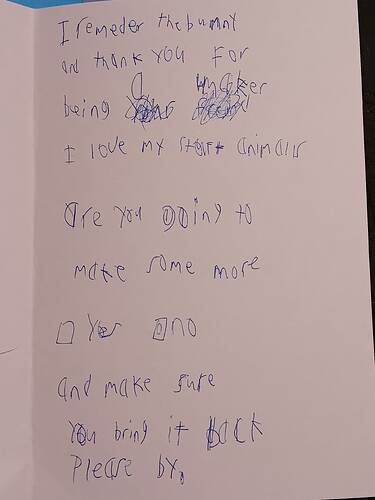 I remeder the bunny
and thank you for
a maker
being
I love my stoft animals
are you going to
make some more
yes no
and make sure
You bring it back
Please by.